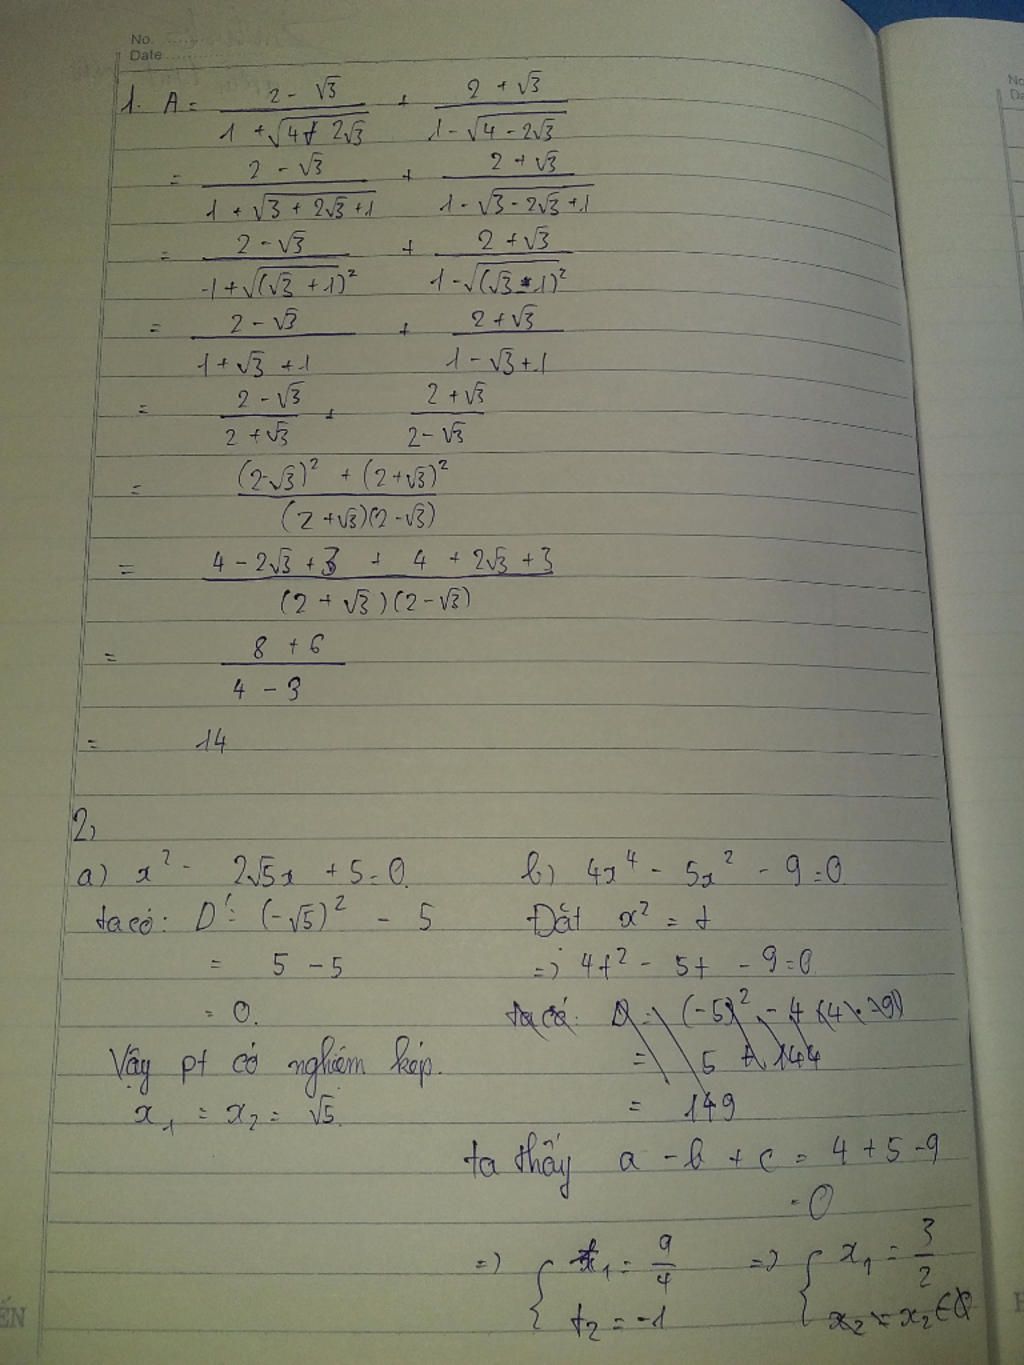 No.
Date
1. A = (2 - √3)/(1 + √(4 + 2√3)) + (2 + √3)/(1 - √(4 - 2√3))
= (2 - √3)/(1 + √(3 + 2√3 + 1)) + (2 + √3)/(1 - √(3 - 2√3 + 1))
= (2 - √3)/(1 + √((√3 + 1)²)) + (2 + √3)/(1 - √((√3 - 1)²))
= (2 - √3)/(1 + √3 + 1) + (2 + √3)/(1 - √3 + 1)
= (2 - √3)/(2 + √3) + (2 + √3)/(2 - √3)
= ((2 - √3)² + (2 + √3)²)/((2 + √3)(2 - √3))
= (4 - 2√3 + 3 + 4 + 2√3 + 3)/((2 + √3)(2 - √3))
= (8 + 6)/(4 - 3)
= 14
2,
a) x² - 2√5x + 5 = 0.
ta có: D' = (-√5)² - 5
= 5 - 5
= 0.
Vậy pt có nghiệm kép.
x₁ = x₂ = √5.
b) 4x⁴ - 5x² - 9 = 0
Đắt x² = t
=> 4t² - 5t - 9 = 0
ta có: Δ = (-5)² - 4 (4) . (-9)
= 5 + 144
= 149
ta thấy a - b + c = 4 + 5 - 9
= 0
=> { t₁ = 9/4 => { x₁ = 3/2
t₂ = -1 x₂ = x₂ ∈ Q
ẾN
No
Da
H